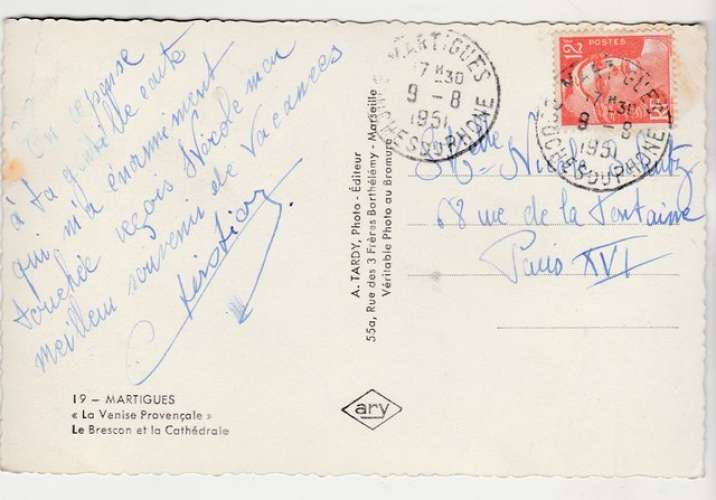 En réponse
à ta gentille carte
qui m'a énormément
touchée reçois Nicole mon
meilleur souvenir de Vacances
MARTIGUES
17 H30
9 - 8
1951
BCHES DU RHONE
12F
POSTES
MARTIGUES
17 H30
9 - 8
1951
BCHES DU RHONE
Melle Nicole
18 rue de la Fontaine
Paris XVI
A. TARDY, Photo - Éditeur
55a, Rue des 3 Frères Barthélémy - Marseille
Véritable Photo au Bromure
19 – MARTIGUES
« La Venise Provençale »
Le Brescon et la Cathédrale
ary